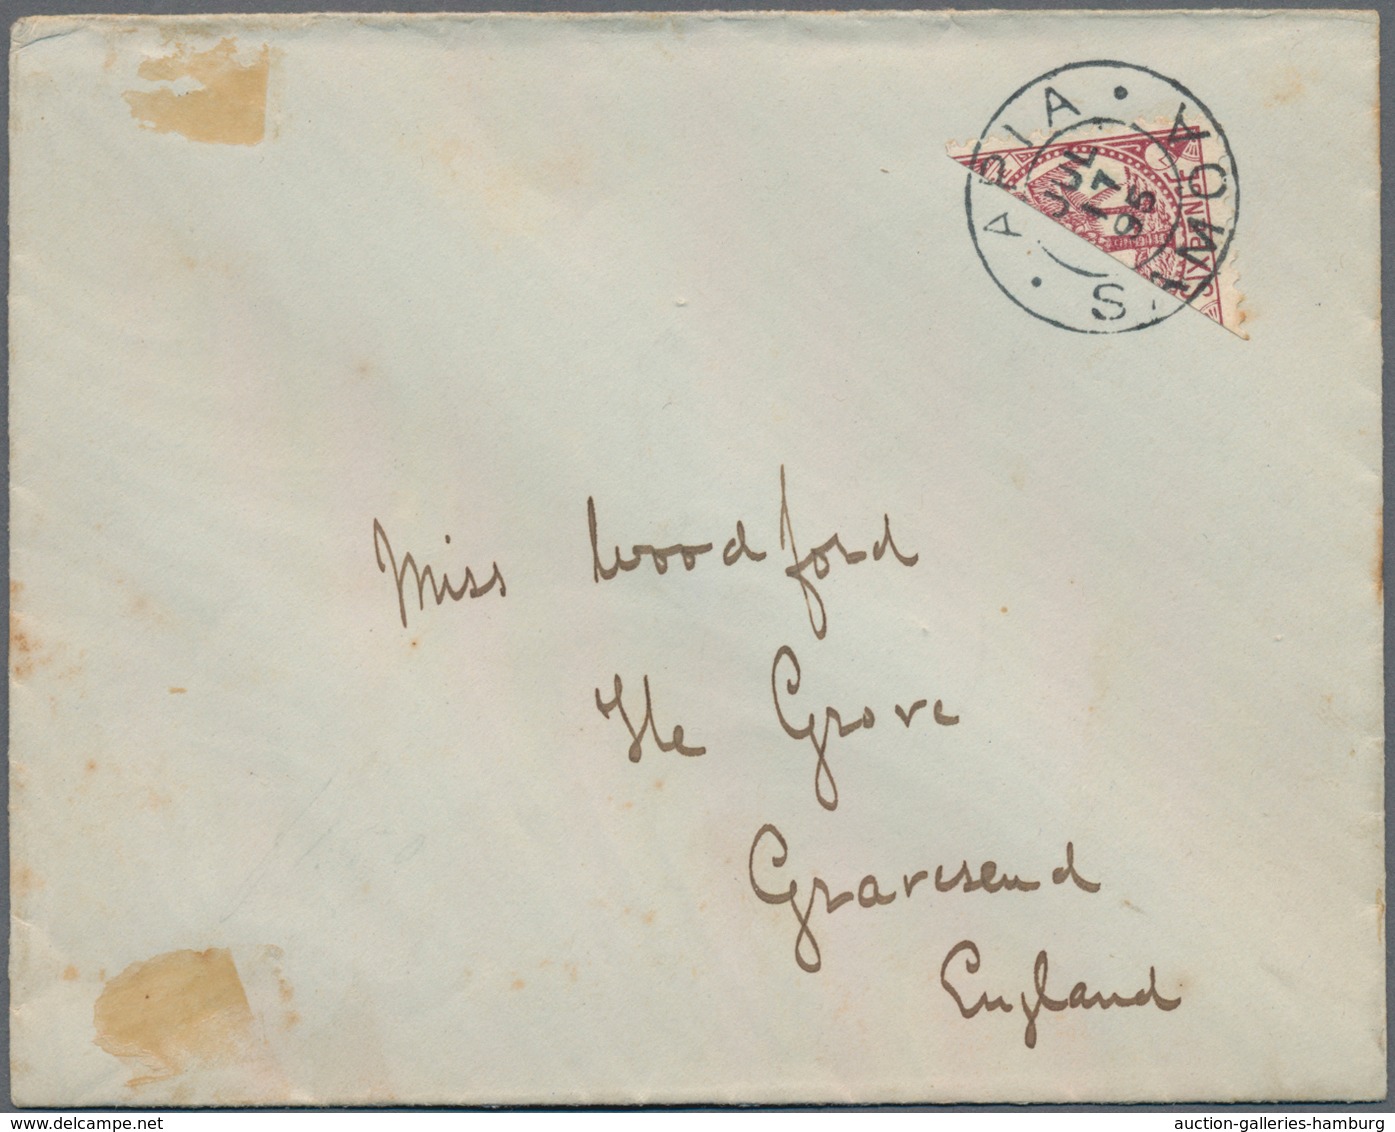 APIA • SAMOA •
JUL
17
95
SIXPENCE
Miss Woodford
The Grove
Gravesend
England
auction-galleries-hamburg